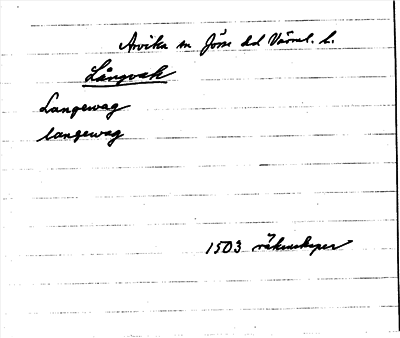 Arvika sn Jösse hd Värml. l.
Långvak
Langewag
langewag
1503 räkenskaper